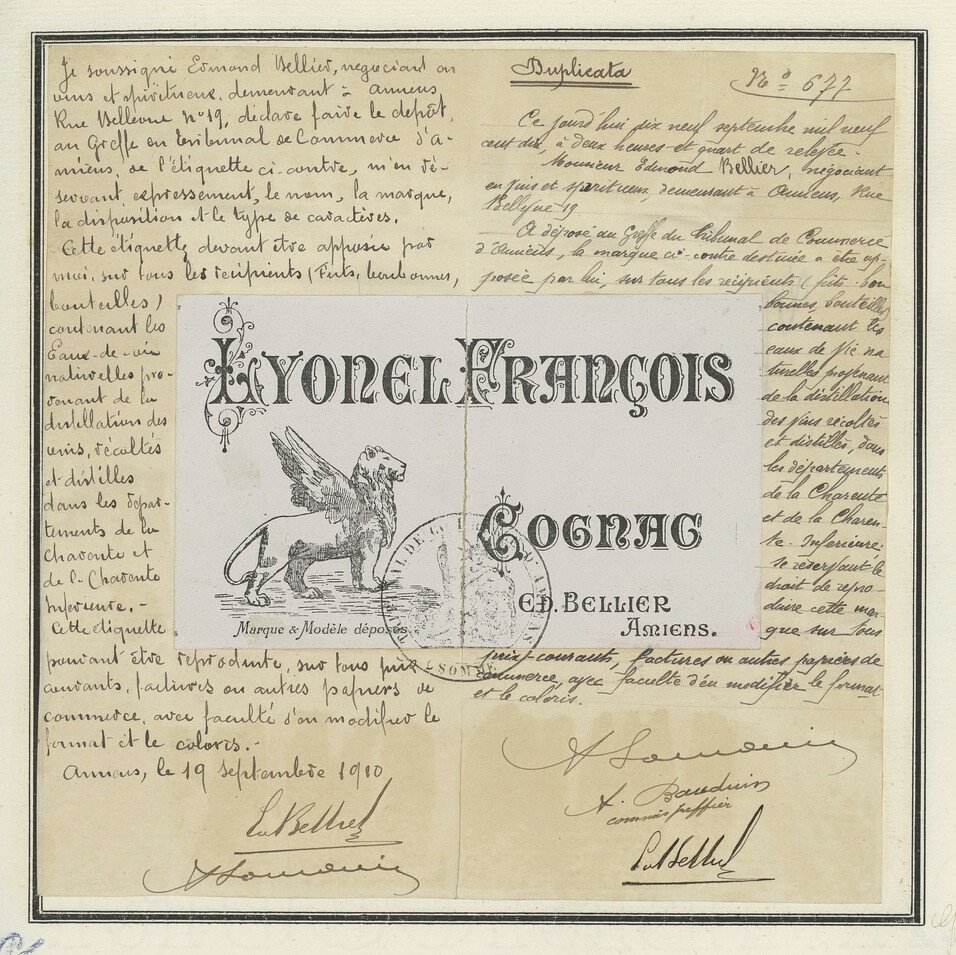 Je soussigné Edmond Bellier, negociant en
vins et spiritueux, demeurant à Amiens,
Rue Bellevue n° 19, déclare faire le depôt,
au Greffe du Tribunal de Commerce d'A-
miens, de l'étiquette ci-contre, m'en ré-
servant, expressement, le nom, la marque,
la disposition et le type de caractères.
Cette étiquette devant être apposée par
moi, sur tous les récipients (Futs, bonbonnes,
bouteilles)
contenant les
Eaux-de-vie
naturelles pro-
venant de la
distillation des
vins, récoltés
et distillés
dans les dépar-
tements de la
Charente et
de la Charente
Inférieure.-
Cette étiquette
pouvant être reproduite, sur tous prix
courants, factures ou autres papiers de
commerce, avec faculté d'en modifier le
format et le coloris.-
Amiens, le 19 Septembre 1910
Ed Bellier
Duplicata
N° 677
Ce jourd'hui dix neuf septembre mil neuf
cent dix, à deux heures et quart de relevée.
Monsieur Edmond Bellier, negociant
en vins et spiritueux, demeurant à Amiens, Rue
Bellevue 19
A déposé au Greffe du Tribunal de Commerce
d'Amiens, la marque ci-contre destinée a être ap-
posée par lui, sur tous les récipients (fûts. bon
bonnes, bouteilles)
contenant les
eaux de Vie na
turelles provenant
de la distillation
des vins récoltés
et distillés, dans
les départements
de la Charente
et de la Charen-
te. Inferieure;
se réservant le
droit de repro-
duire cette mar
que sur tous
prix-courants, factures ou autres papiers de
commerce, avec faculté d'en modifier le format
et le coloris.
A. Baudouin
commis greffier
Ed Bellier
LYONEL FRANÇOIS
COGNAC
ED. BELLIER
AMIENS.
Marque & Modèle déposés
TRIBUNAL DE COMMERCE D'AMIENS
SOMME